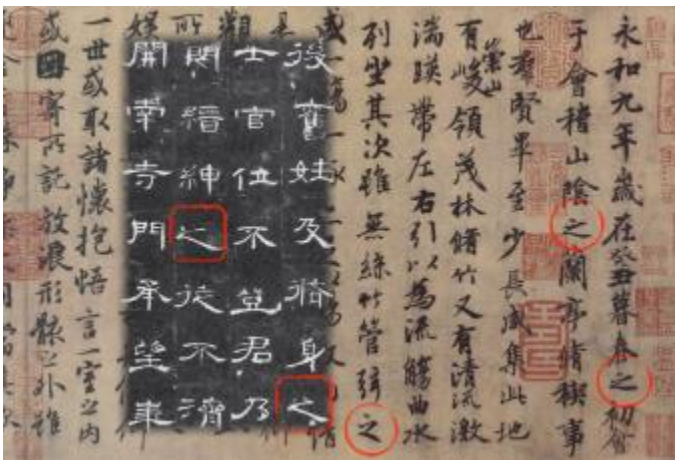 永和九年歲在癸丑暮春之初會
于會稽山陰之蘭亭脩稧事
也羣賢畢至少長咸集此地
有崇山峻領茂林脩竹又有清流激
湍暎帶左右引以為流觴曲水
列坐其次雖無絲竹管弦之
後舊姓及脩身之
士官位不登君乃
閔縉紳之徒不濟
開南寺門承望華
一世或取諸懷抱悟言一室之內
或因寄所託放浪形骸之外雖